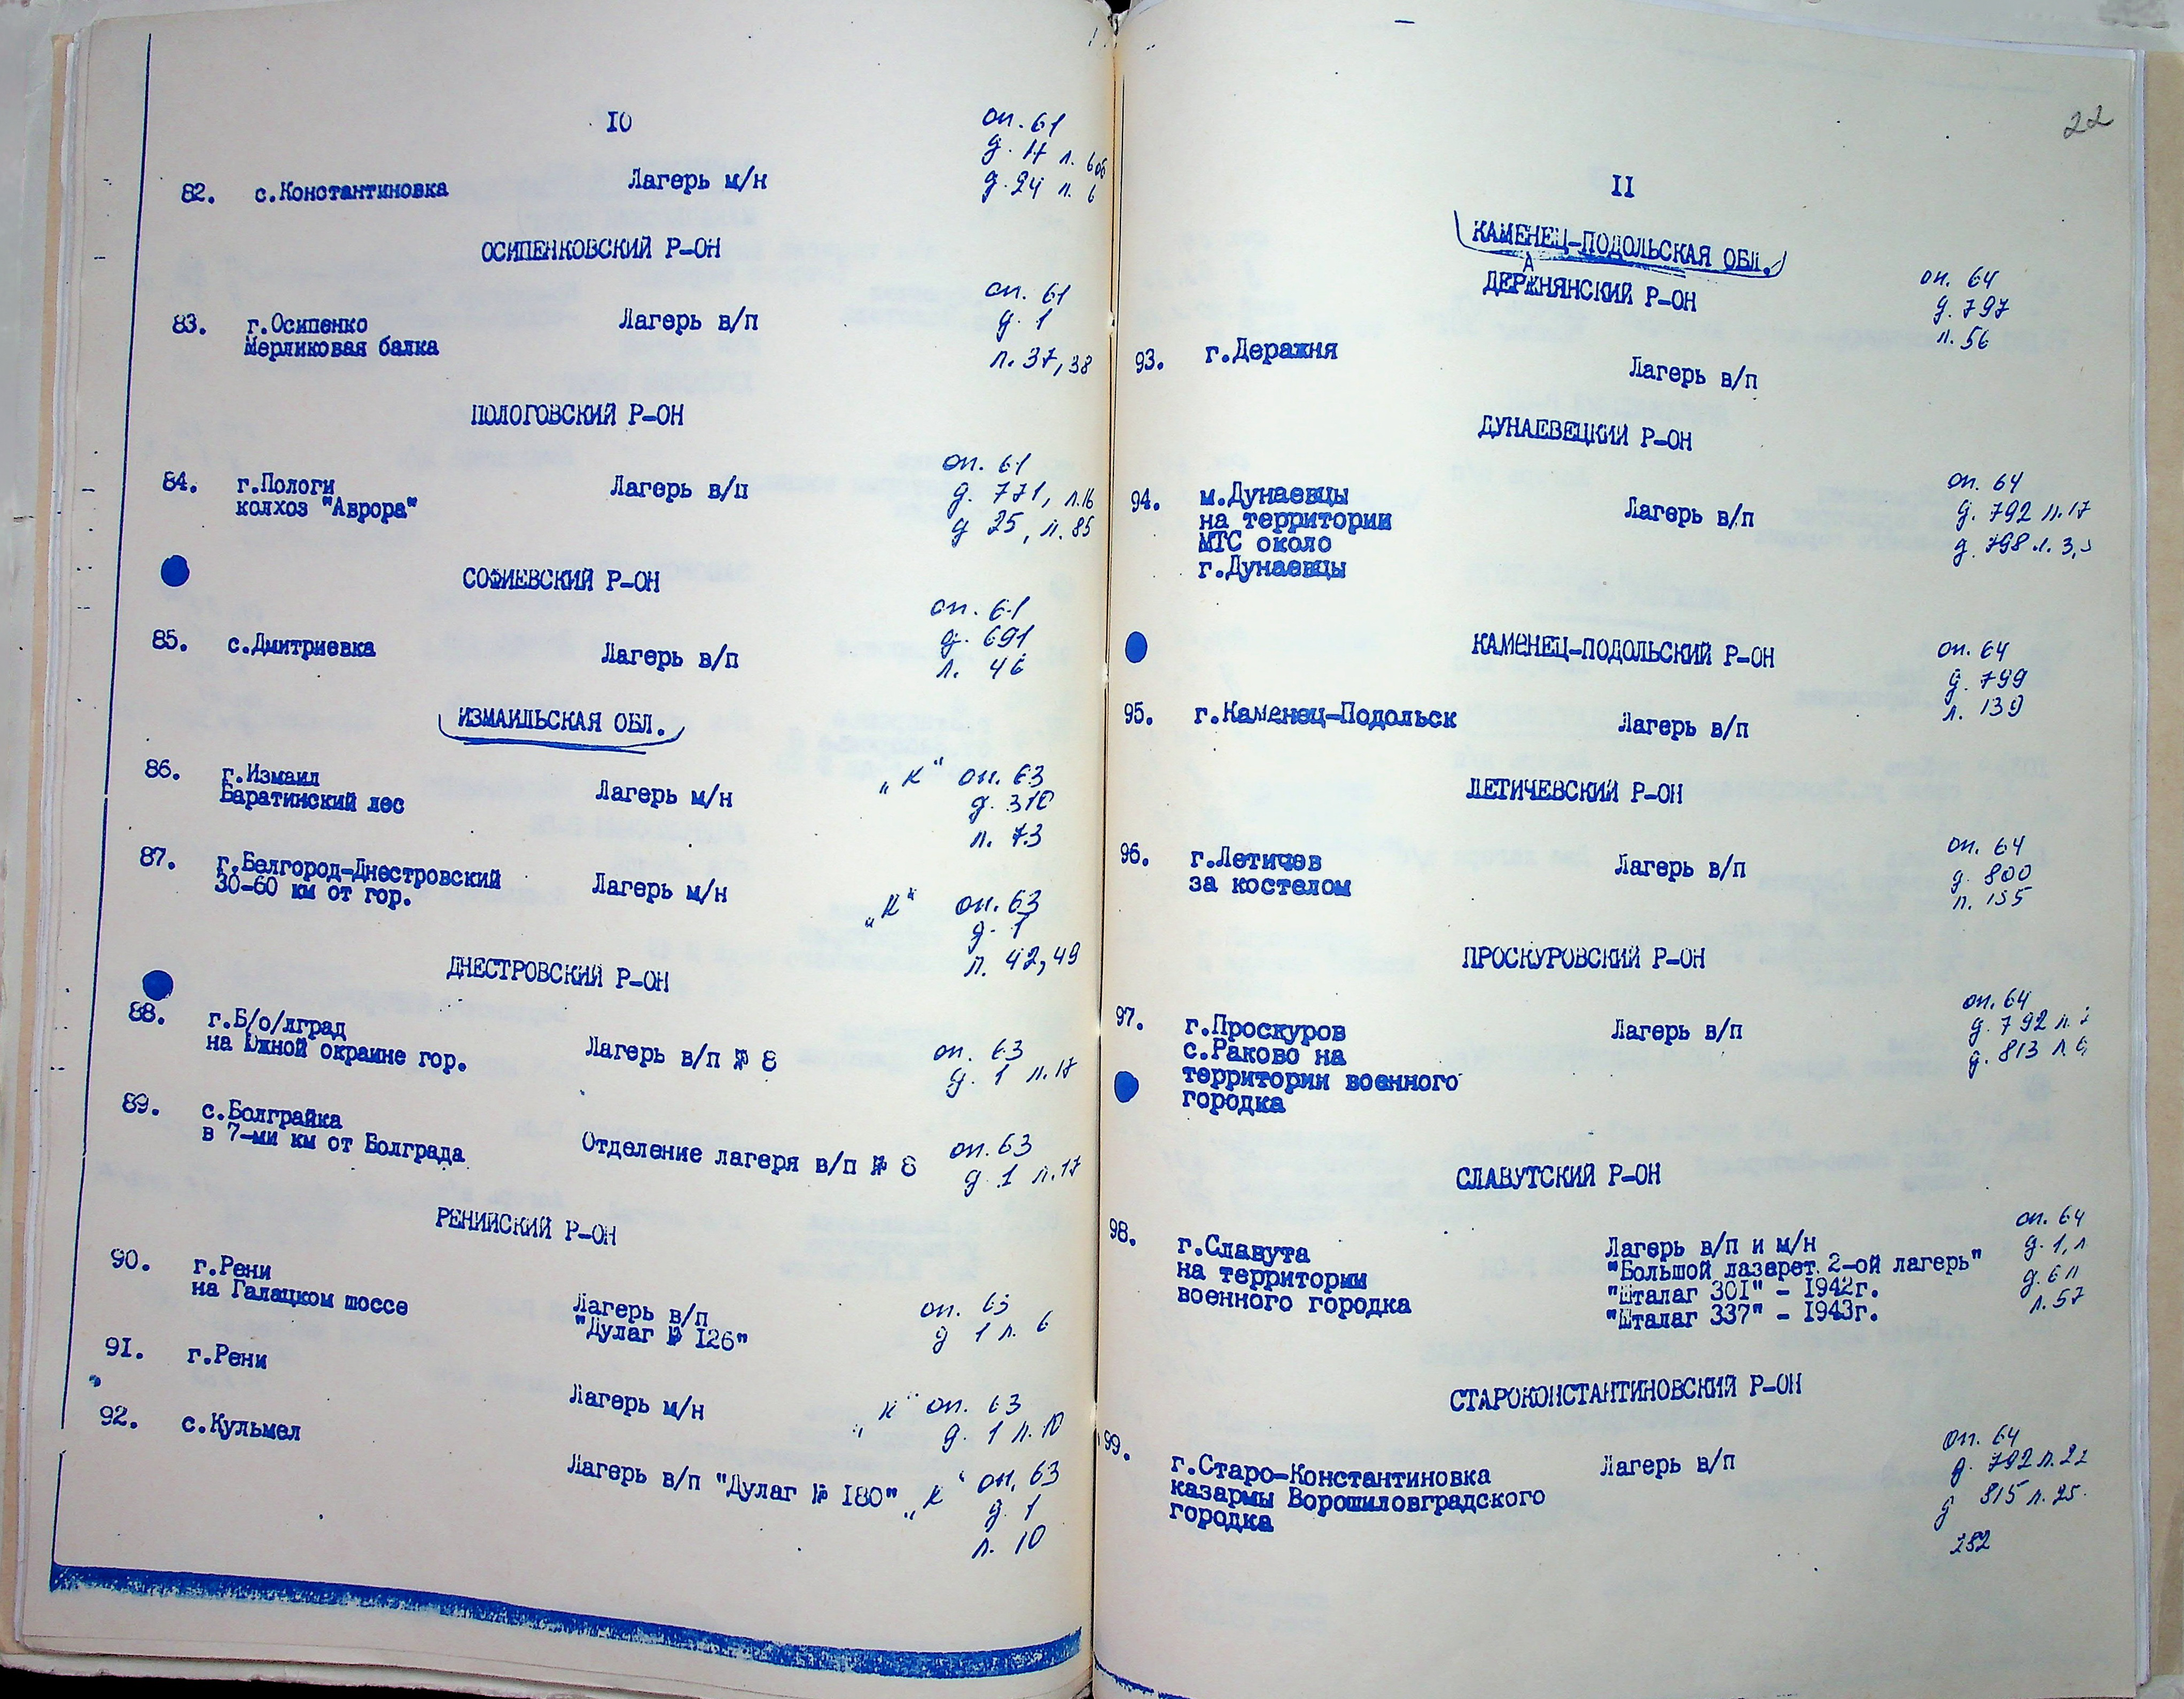 10
82. с.Константиновка Лагерь м/н оп. 61
д. 17 л. 606
д. 24 л. 6
ОСИПЕНКОВСКИЙ Р-ОН
83. г.Осипенко Лагерь в/п оп. 61
Мерликовая балка д. 1
л. 37,38
ПОЛОГОВСКИЙ Р-ОН
84. г.Пологи Лагерь в/п оп. 61
колхоз "Аврора" д. 771, л.16
д 25, л. 85
СОФИЕВСКИЙ Р-ОН
85. с.Дмитриевка Лагерь в/п оп. 61
д. 691
л. 46
ИЗМАИЛЬСКАЯ ОБЛ.
86. г.Измаил Лагерь м/н "К" оп. 63
Баратинский лес д. 310
л. 73
87. г.Белгород-Днестровский Лагерь м/н "К" оп. 63
30-60 км от гор. д. 1
л. 42,49
ДНЕСТРОВСКИЙ Р-ОН
88. г.Б/о/лград Лагерь в/п № 8 оп. 63
на Южной окраине гор. д. 1 л.17
89. с.Болграйка Отделение лагеря в/п № 8 оп. 63
в 7-ми км от Болграда д. 1 л.17
РЕНИЙСКИЙ Р-ОН
90. г.Рени Лагерь в/п оп. 63
на Галацком шоссе "Дулаг № 126" д 1 л. 6
91. г.Рени Лагерь м/н "К" оп. 63
д. 1 л. 10
92. с.Кульмел Лагерь в/п "Дулаг № 180" "К" оп. 63
д. 1
л. 10
22
11
КАМЕНЕЦ-ПОДОЛЬСКАЯ ОБЛ.
ДЕРАЖНЯНСКИЙ Р-ОН
93. г.Деражня Лагерь в/п оп. 64
д. 797
л. 56
ДУНАЕВЕЦКИЙ Р-ОН
94. м.Дунаевцы Лагерь в/п оп. 64
на территории д. 792 л.17
МТС около д. 798 л. 3,
г.Дунаевцы
КАМЕНЕЦ-ПОДОЛЬСКИЙ Р-ОН
95. г.Каменец-Подольск Лагерь в/п оп. 64
д. 799
л. 139
ЛЕТИЧЕВСКИЙ Р-ОН
96. г.Летичев Лагерь в/п оп. 64
за костелом д. 800
л. 155
ПРОСКУРОВСКИЙ Р-ОН
97. г.Проскуров Лагерь в/п оп. 64
с.Раково на д. 792 л.
территории военного д. 813 л.
городка
СЛАВУТСКИЙ Р-ОН
98. г.Славута Лагерь в/п и м/н оп. 64
на территории "Большой лазарет. 2-ой лагерь" д. 1, л
военного городка "Шталаг 301" - 1942г.
"Шталаг 337" - 1943г. л. 57
СТАРОКОНСТАНТИНОВСКИЙ Р-ОН
99. г.Старо-Константиновка Лагерь в/п оп. 64
казармы Ворошиловградского д. 792 л.22
городка д 815 л. 25
252